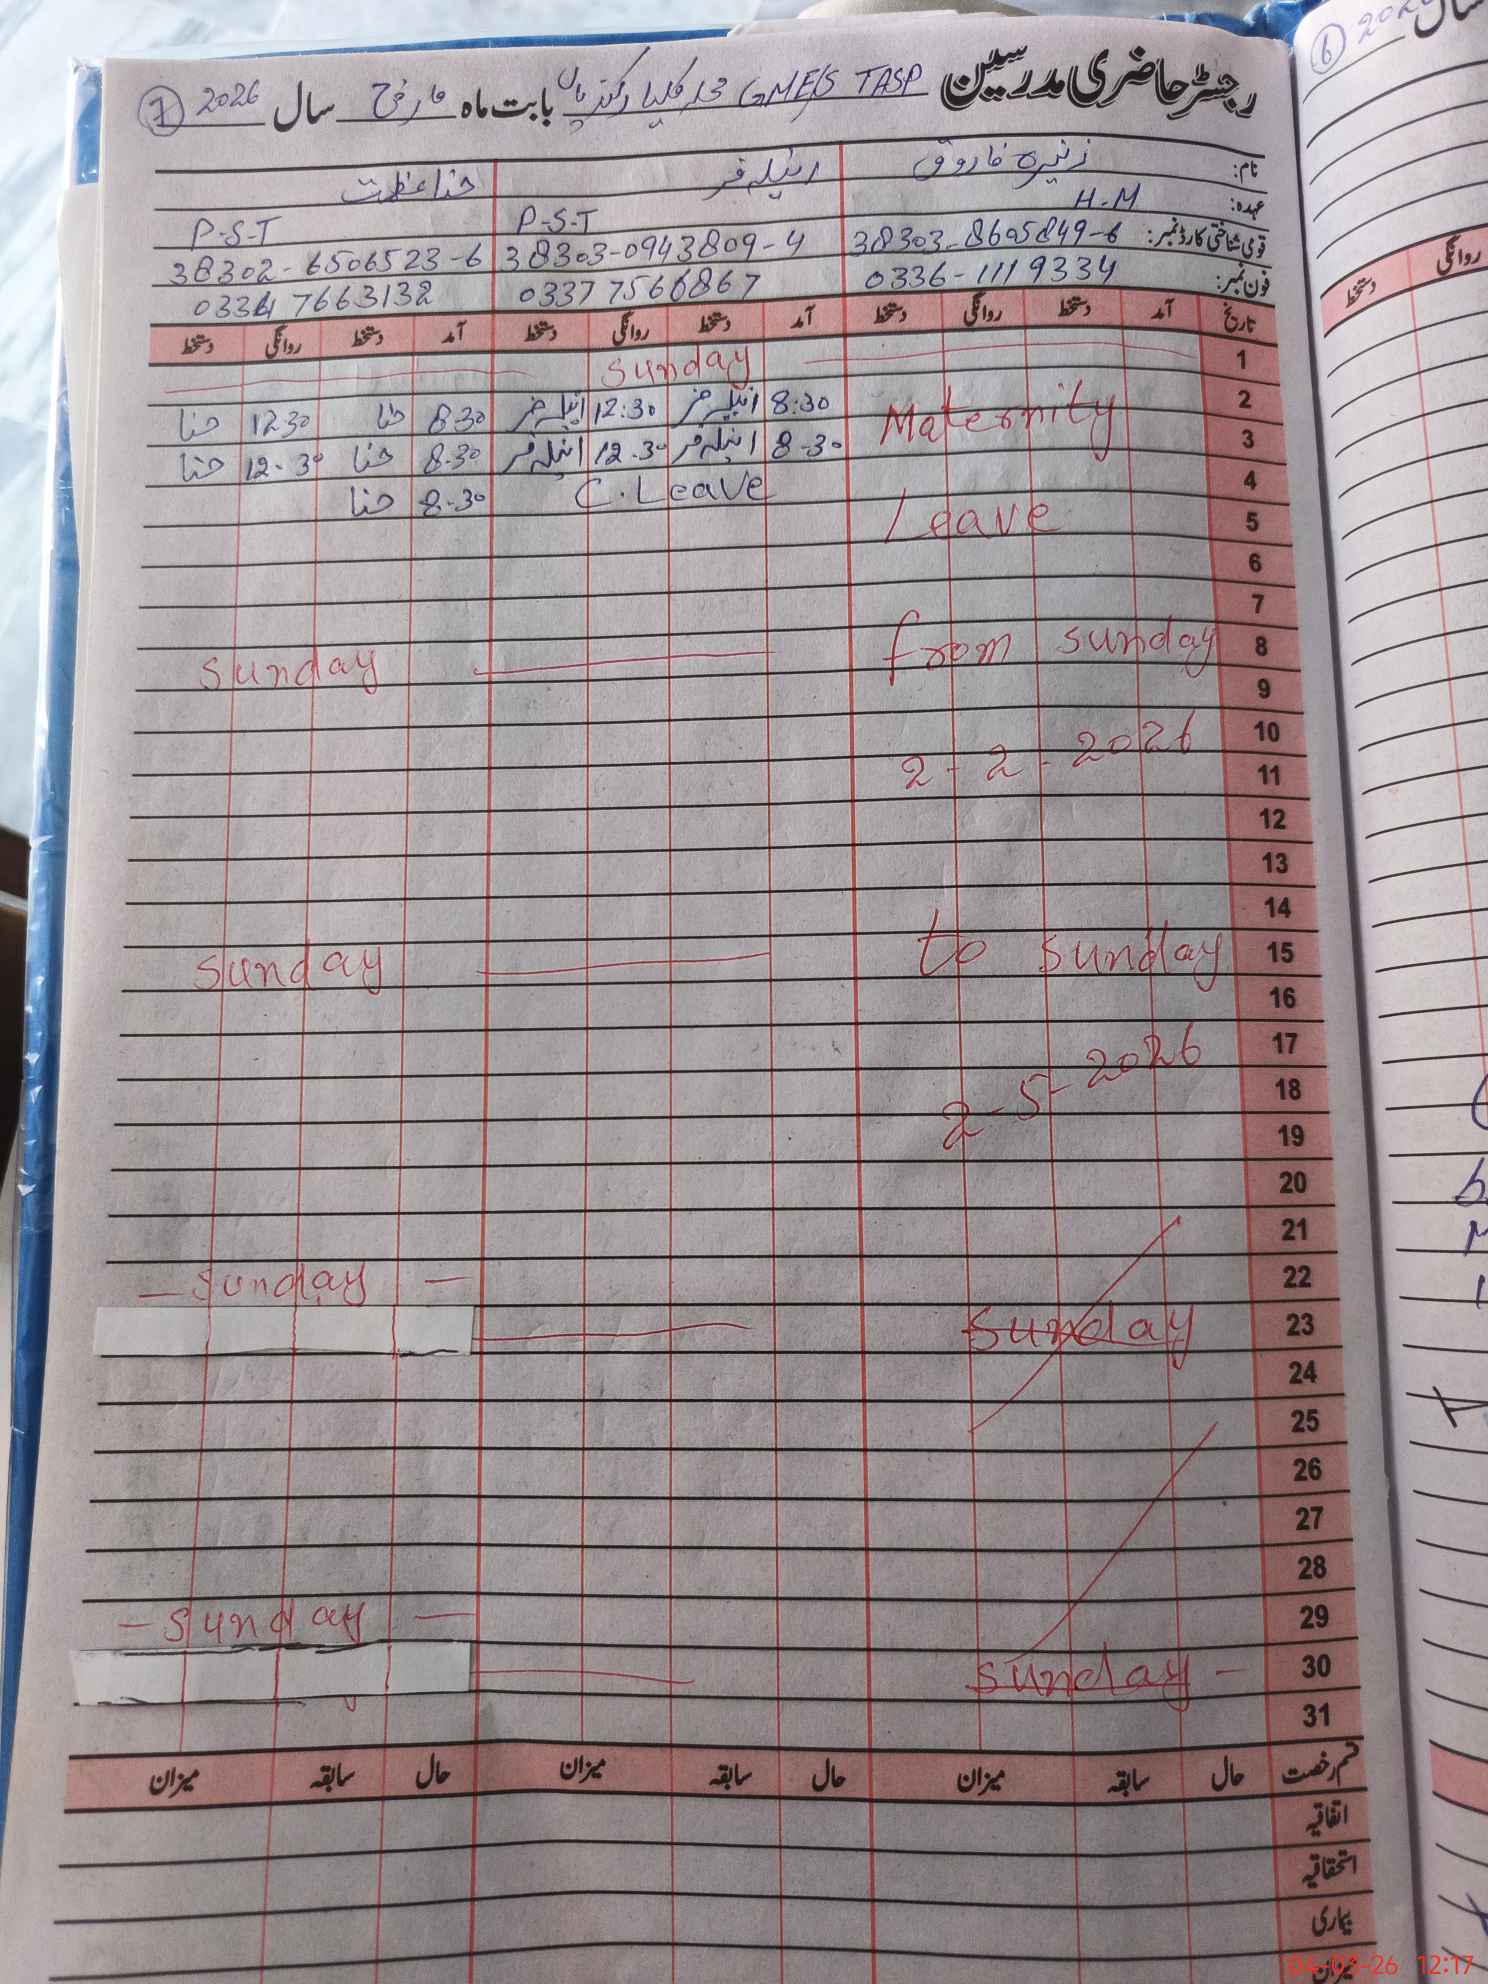 رجسٹر حاضری مدرسین GME/S TASP بابت ماہ مارچ سال 2026 7
نام: زنیرہ فاروق انیلہ قمر حنا عظمت
عہدہ: H.M P-S-T P-S-T
قومی شناختی کارڈ نمبر: 38303-8605849-6 38303-0943809-4 38302-6506523-6
فون نمبر: 0336-1119334 03377566867
تاریخ آمد دستخط روانگی دستخط آمد دستخط روانگی دستخط آمد دستخط روانگی دستخط
1 Sunday
2 Maternity 8:30 12:30 8.30 حنا 12 30 حنا
3 8-30 انیلہ قمر 12.30 انیلہ قمر 8.30 حنا 12.30 حنا
4 C.Leave 8-30 حنا
5 Leave
6
7
8 from Sunday Sunday
9
10 2-2-2026
11
12
13
14
15 to Sunday Sunday
16
17 2-5-2026
18
19
20
21
22 – Sunday –
23 Sunday
24
25
26
27
28
29 – Sunday –
30 Sunday –
31
قسم رخصت حال سابقہ میزان حال سابقہ میزان حال سابقہ میزان
اتفاقیہ
استحقاقیہ
بیماری
میزان
6
سال
روانگی دستخط
04-03-26 12:17